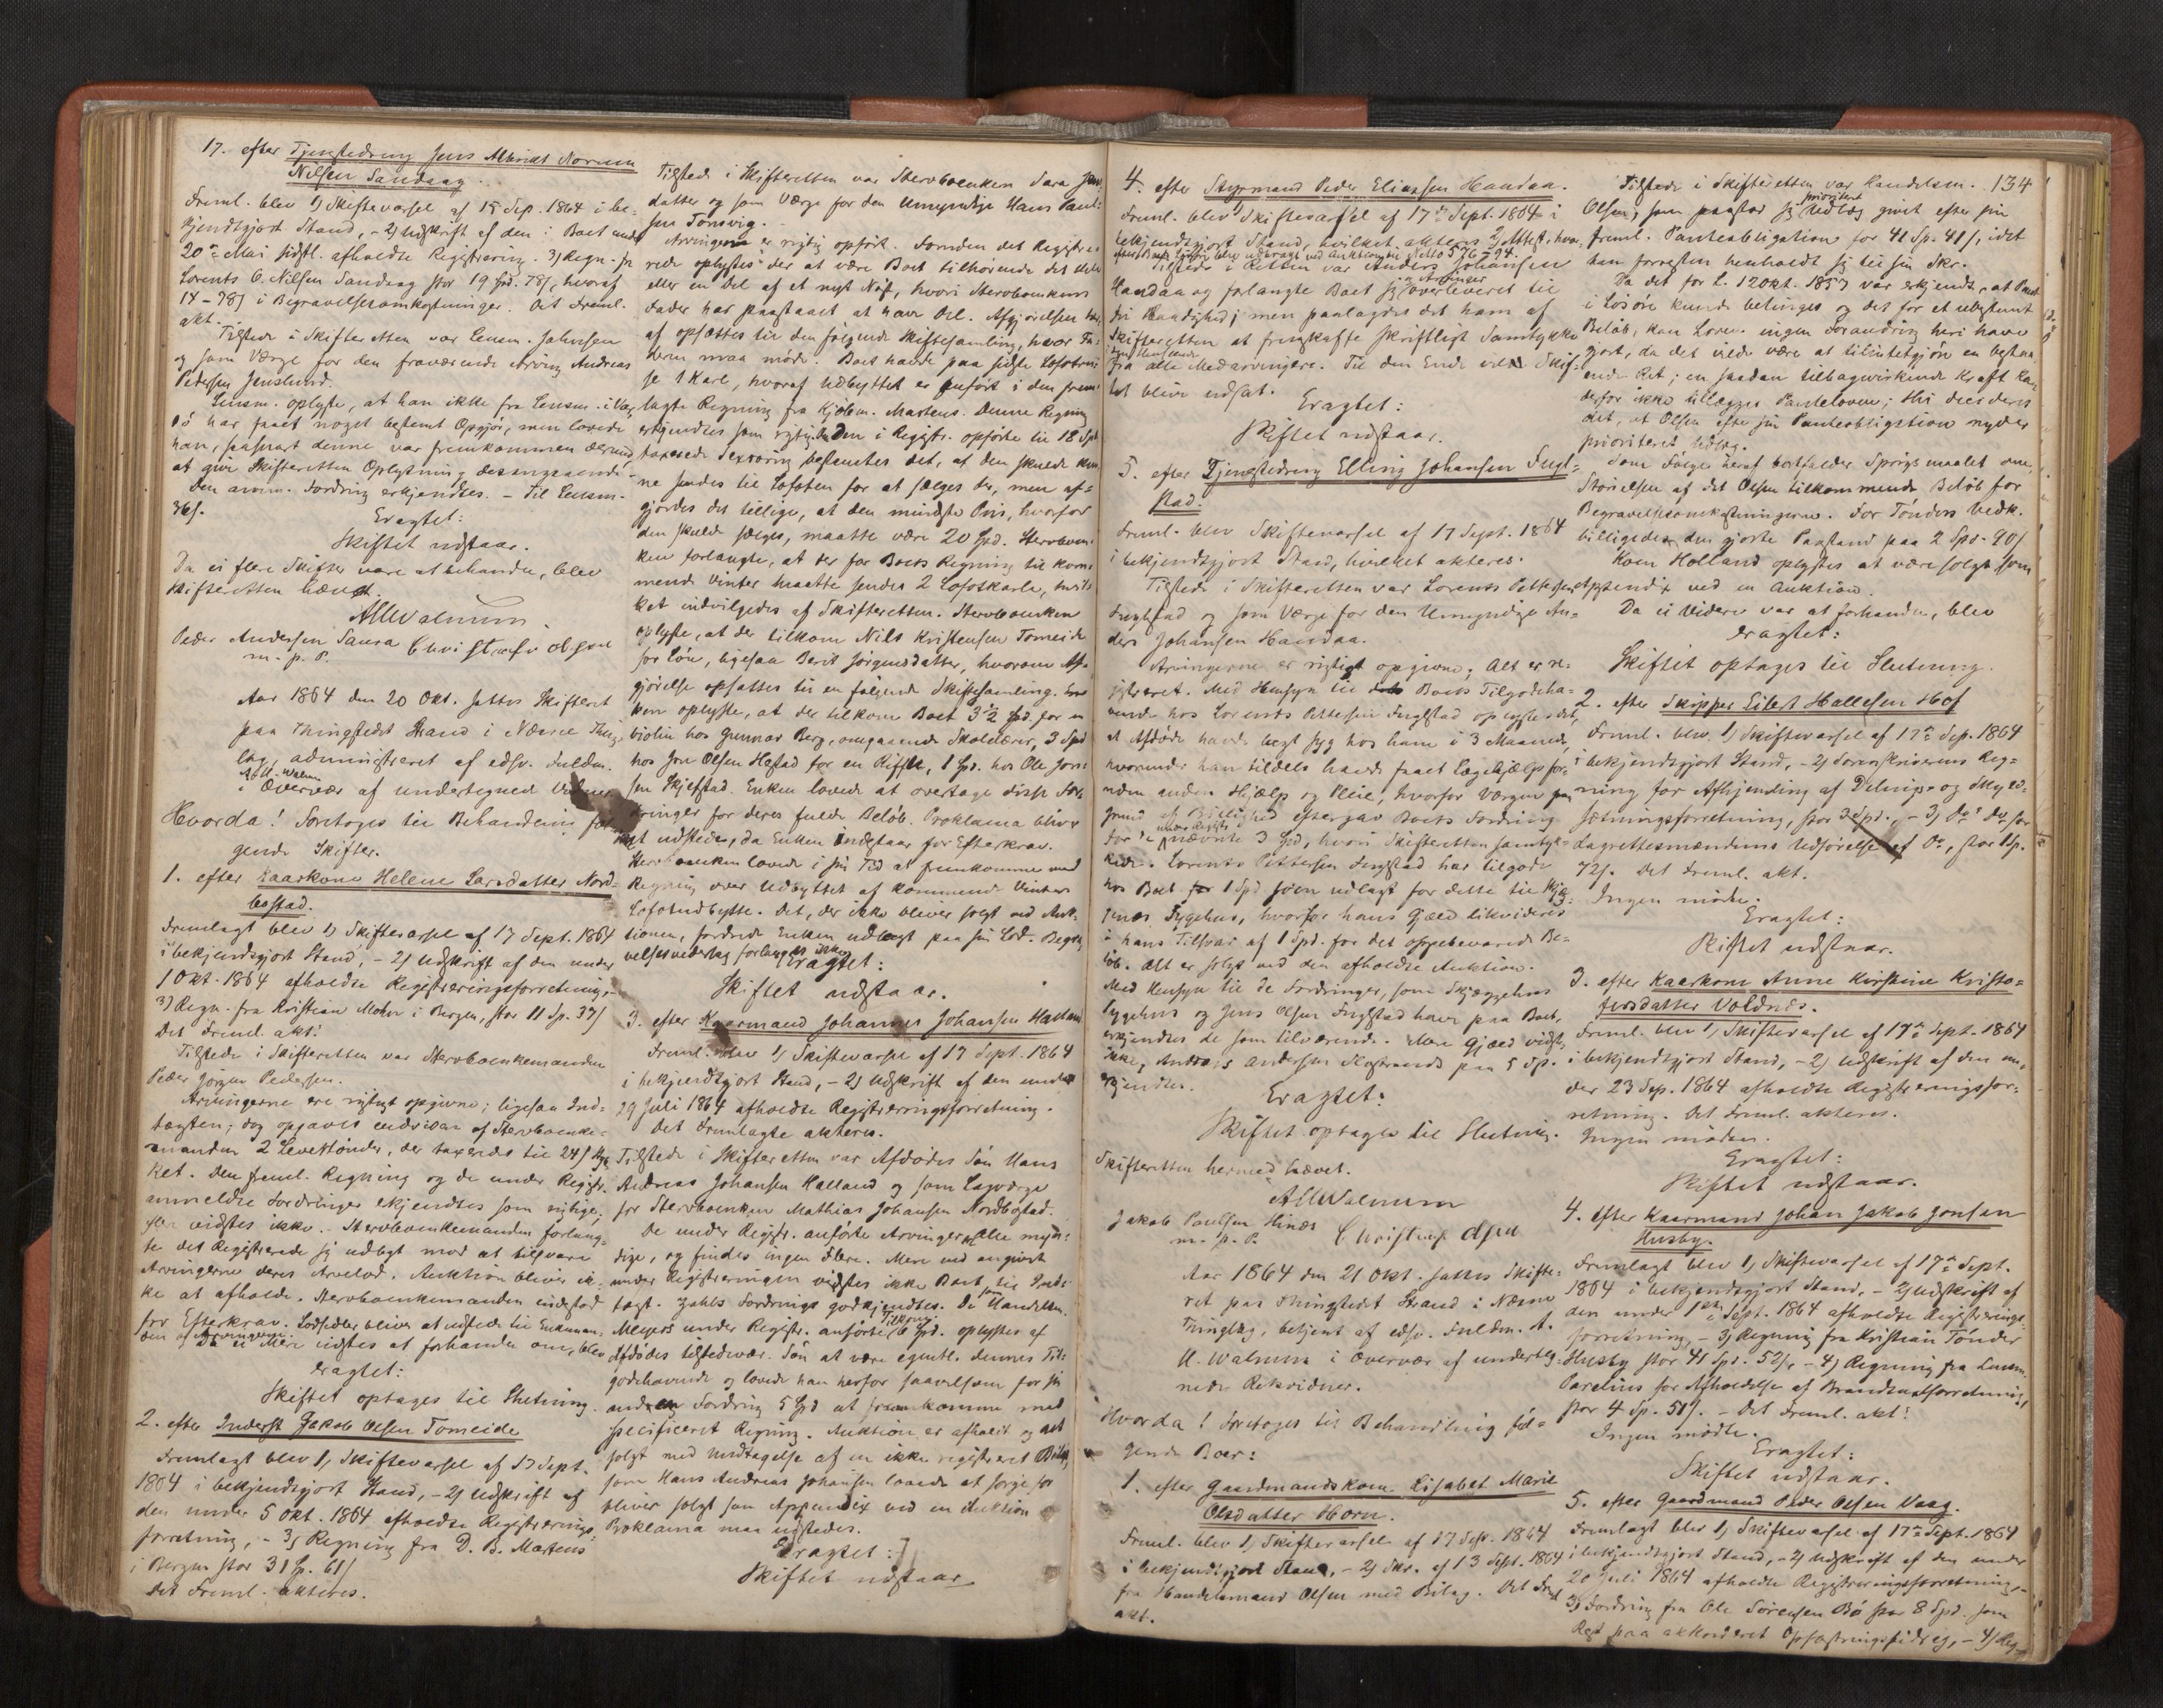 17. efter Tjenestedreng Jens Albrigt Norum
Nilsen Sandaag.
Freml. blev 1) Skiftevarsel af 15 Sep. 1864 i be-
kjendtgjort Stand, - 2) Udskrift af den i Boet under
20de Mai sidstl. afholdte Registrering. 3) Regn. fra
Lorents C. Nilsen Sandaag stor 19 Spd. 78 s, hvoraf
14 - 78 s i Begravelsesomkostninger. Det Freml.
akt.
Tilstede i Skifteretten var Lensm. Johnsen
og som Værge for den fraværende Arving Andreas
Pedersen
Lensm. oplyste, at han ikke fra Lensm. i Væg-
sø har faaet noget bestemt Opgjør, men lovede
han, saasnart denne var fremkommen
at give Skifteretten Oplysning desangaaende.
Den anm. Fordring erkjendtes. - Til Lensm.
36 s.
Eragtet:
Skiftet udstaar.
Da ei flere Skifter vare at behandle, blev
Skifteretten hævet.
AUWalnum
Peder Andersen Sausa Christofer olsen
m. p. P.
Aar 1864 den 20 Okt. sattes Skifteret
paa Thingstedet Strand i Næsne Thing-
lag, administreret af edsv. Fuldm.
A. U. Walnum
i Overvær af undertegnede Vidner
Hvorda! Foretoges til Behandling føl-
gende Skifter.
1. efter Kaarkone Helene Larsdatter Nord-
bostad.
Fremlagt blev 1) Skiftevarsel af 17 Sept. 1864
i bekjendtgjort Stand, - 2) Udskrift af den under
1 Okt. 1864 afholdte Registreringsforretning, -
3) Regn. fra Kristian Mohr i Bergen, stor 11 Sp. 37 s
Det Freml. akt:
Tilstede i Skifteretten var Stervboenkemanden
Peder Jørgen Pedersen.
Arvingerne ere rigtigt opgivne; ligesaa Ind-
tægten; dog opgaves endvidere af Stervboenke-
manden 2 Levertønder, der taxeredes til 24 s Styk-
ket. Den freml. Regning og de under Registr.
anmeldte Fordringer erkjendtes som rigtige;
flere vidstes ikke. Stervboenkemanden forlang-
te det Registrerede sig udlagt mod at tilsvare
Arvingerne deres Arvelod. Auktion bliver ik-
ke at afholde. Stervboenkemanden indestod
for Efterkrav. Lodsedler bliver at udstede til Enkeman-
den og Arvingerne.
Da ei Mere vidstes at forhandle om, blev
eragtet:
Skiftet optages til Slutning.
2. efter Inderst Jakob Olsen Tomeide
Fremlagt blev 1) Skiftevarsel af 17 Sept.
1864 i bekjendtgjort Stand, - 2) Udskrift af
den under 5 Okt. 1864 afholdte Registrerings-
forretning, - 3) Regning fra D. B. Martens
i Bergen stor 31 Sp. 61 s
Det Freml. akteres.
Tilstede i Skifteretten var Stervboenken Sara Jens-
datter og som Værge for den Umyndige Hans Paul-
sen Tonsvig.
Arvingerne er rigtig opført. Foruden det Registre-
rede oplystes der at være Boet tilhørende det Hele
eller en Del af et nyt Nøst, hvori Stervboenkens
Fader har paastaaet at have Del. Afgjørelsen her-
af opsættes til den følgende Skiftesamling, hvor Fa-
deren maa møde. Boet havde paa sidste Lofottur
se 1 Karl, hvoraf Udbyttet er anført i den frem-
lagte Regning fra Kjøbm. Martens. Denne Regning
erkjendtes som rigtig. Den i Registr. opførte til 18 Spd
taxerede Sexroring bestemtes det, at den skulde kun-
ne sendes til Lofoten for at sælges der, men af-
gjordes det tillige, at den mindste Pris, hvorfor
den skulde sælges, maatte være 20 Spd. Stervboen-
ken forlangte, at der for Boets Regning til kom-
mende Vinter maatte sendes 2 Lofotkarle, hvil-
ket indvilgedes af Skifteretten. Stervboenken
oplyste, at der tilkom Nils Kristensen Tomeide
for Løn, ligesaa Berit Jørgensdatter, hvorom Af-
gjørelse opsattes til en følgende Skiftesamling.
oplyste, at der tilkom Boet 3 1/2 Spd. for en
Violin hos Gunnar Berg, omgaaende Skolelærer, 3 Spd
hos Jon Olsen Hestad for en Riffle, 1 Spd. hos Ole Jon-
sen Skjefstad. Enken lovede at overtage disse For-
dringer for deres fulde Beløb. Proklama bliver
ikke at udstede, da Enken indstaar for Efterkrav.
Stervboenken lovede i sin Tid at fremkomme med
Regning over Udbyttet af kommende Vinters
Lofotudbytte. Det, der ikke bliver solgt ved Auk-
tionen, fordrede Enken udlagt paa sin Lod. Begra-
velsesvederlag forlanges ikke
Eragtet:
Skiftet udstaar.
3. efter Kaarmand Johannes Johansen Halland
Freml. blev 1) Skiftevarsel af 17 Sept. 1864
i bekjendtgjort Stand, - 2) Udskrift af den under
29 Juli 1864 afholdte Registreringsforretning.
Det Fremlagte akteres.
Tilstede i Skifteretten var Afdødes Søn Hans
Andreas Johansen Halland og som Lagværge
for Stervboenken Mathias Johansen Nordbostad.
De under Registr. anførte Arvinger ere alle myn-
dige, og findes ingen Flere. Mere end angivet
under Registreringen vidstes ikke Boet til Ind-
tægt. Zahls Fordrings godkjendtes. De som Handelsm.
Meyers under Registr. anførte Tilkrav 6 Spd. oplystes af
Afdødes tilstedevær. Søn at være egentl. dennes Til-
godehavende og lovede han herfor saavelsom for sin
anden Fordring 5 Spd at fremkomme med
specificeret Regning. Auktion er afholdt og Alt
solgt med Undtagelse af en ikke registreret
som Hans Andreas Johansen lovede at sørge for
bliver solgt som Appendix ved en Auktion
Proklama maa udstedes.
Eragtet:
Skiftet udstaar
4. efter Styrmand Peder Eliassen Handaa.
Freml. blev 1) Skiftevarsel af 17de Sept. 1864 i
bekjendtgjort Stand, hvilket akteres 2) Attest, hvor-
efter Boets Løsøre blev udbragt ved Auktion til Netto 576 - 94.
Tilstede i Retten var Anders Johansen
Handaa og forlangte Boet sig og Arvinger overleveret til
fri Raadighed; men paalagdes det ham af
Skifteretten at fremskaffe skriftligt Samtykke
i saa Henseende
fra alle Medarvingere. Til den Ende vil Skif-
tet blive udsat.
Eragtet:
Skiftet udstaar.
5. efter Tjenestedreng Elling Johansen Fugl-
stad.
Freml. blev Skiftevarsel af 17 Sept. 1864
i bekjendtgjort Stand, hvilket akteres.
Tilstede i Skifteretten var Lorents Pettersen
Fuglstad og som Værge for den Umyndige An-
ders Johansen Handaa.
Arvingerne er rigtigt opgivne; Alt er re-
gistreret. Med Hensyn til Boets Tilgodeha-
vende hos Lorents Pettersen Fuglstad oplystes det,
at Afdøde havde lagt syg hos ham i 3 Maaneder,
hvorunder han tildels havde faaet Lægehjælp for-
uden anden Hjælp og Pleie, hvorfor Værgen paa
Grund af Billighed eftergav Boets Fordring
for de under Registr. nævnte 3 Spd, hvori Skifteretten samtyk-
kede. Lorents Pettersen Fuglstad har tilgode
hos Boet for 1 Spd som udlagt for dette til Skjæg-
genes Sygehus, hvorfor hans Gjæld likvideres
i hans Tilsvar af 1 Spd. for det oppebevarede Be-
løb. Alt er solgt ved den afholdte Auktion.
Med Hensyn til de Fordringer, som Skjeggehus
Sygehus og Jens Olsen Fuglstad have paa Boet,
erkjendtes de som tilværende. Mere Gjæld vidstes
ikke, Andreas Andersen Slotsrands paa 5 Sp.
erkjendtes.
Eragtet:
Skiftet optages til Slutning.
Skifteretten hermed hævet.
AUWalnum
Jakob Paulsen Hinæs Christofer Olsen
m. p. P.
Aar 1864 den 21 Okt. sattes Skifte-
ret paa Thingstedet Strand i Næsne
Thinglag, betjent af edsv. Fuldm. A.
U. Walnum i Overvær af underteg-
nede Retsvidner.
Hvorda! Foretoges til Behandling føl-
gende Boer:
1. efter Gaardmandskone Lisabet Marie
Olsdatter Horn.
Freml. blev 1) Skiftevarsel af 17 Sept. 1864
i bekjendtgjort Stand, - 2) Skr. af 13 Sept. 1864
fra Handelsmand Olsen med Bilag. Det Freml.
akt.
134
Tilstede i Skifteretten var Handelsm.
Olsen, som paastod sig prioritert Udlæg givet efter sin
freml. Panteobligation for 41 Sp. 41 s, idet
han forresten henholdt sig til sin Skr.
Da det før L. 12 Okt. 1857 var erkjendt, at Pant
i Løsøre kunde betinges og det for et ubestemt
Beløb, kan Loven ingen Forandring heri have
gjort, da det vilde være at tilintetgjøre en bestaa-
ende Ret; en saadan tilbagevirkende Kraft kan
derfor ikke tillægges Panteloven; Thi decideres
det, at Olsen efter sin Panteobligation nyder
prioriteret Udlæg.
Som Følge heraf bortfalder Spørgsmaalet om
Størrelsen af det Olsen tilkommende Beløb for
Begravelsesomkostningerne. For Tønders Vedk.
billigedes den gjorte Paastand paa 2 Spd. 90 s
Koen Holland oplystes at være solgt som
Appendix ved en Auktion.
Da ei Videre var at forhandle, blev
eragtet:
Skiftet optages til Slutning.
2. efter Skipper Eilert Hallesen Hof
Freml. blev 1) Skiftevarsel af 17de Sep. 1864
i bekjendtgjort Stand, - 2) Sorenskriverens Reg-
ning for Afhjemling af Delings- og Skyld-
sætningsforretning, stor 3 Spd., - 3) Do Do for
Lagrettesmændenes Udførelse af Do, stor 1 Sp.
72 s. Det Freml. akt.
Ingen mødte.
Eragtet:
Skiftet udstaar.
3. efter Kaarkone Anne Kirstine Kristo-
fersdatter Voldnes.
Freml. blev 1) Skiftevarsel af 17de Sept. 1864
i bekjendtgjort Stand, - 2) Udskrift af den un-
der 23 Sep. 1864 afholdte Registreringsfor-
retning. Det Freml. akteres.
Ingen mødte.
Eragtet:
Skiftet udstaar.
4. efter Kaarmand Johan Jakob Jonsen
Husby.
Fremlagt blev 1) Skiftevarsel af 17de Sept.
1864 i bekjendtgjort Stand, - 2) Udskrift af
den under 1ste Sept. 1864 afholdte Registrerings-
forretning, - 3) Regning fra Kristian Tønder
Husby stor 41 Spd. 52 s, - 4) Regning fra Lensm.
Parelius for Afholdelse af Brandtaxtforretning,
stor 4 Sp. 51 s. - Det Freml. akt:
Ingen mødte.
Eragtet:
Skiftet udstaar.
5. efter Gaardmand Peder Olsen Vaag.
Fremlagt blev 1) Skiftevarsel af 17de Sept. 1864
i bekjendtgjort Stand, - 2) Udskrift af den under
20 Juli 1864 afholdte Registreringsforretning, -
3) Fordring fra Ole Sørensen Bø stor 8 Spd. som
Rest paa akkorderet Opfostringsbidrag, - 4) Reg-